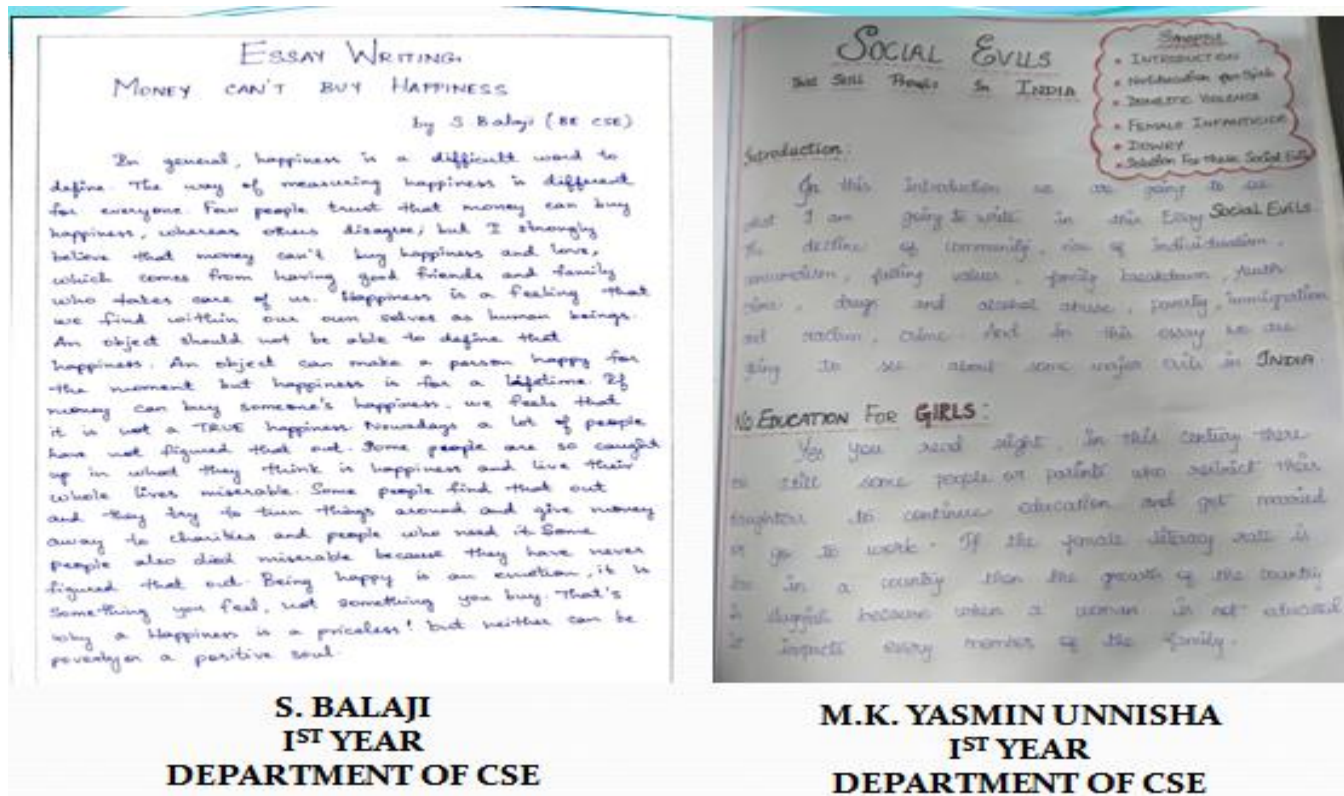 ESSAY WRITING.
MONEY CAN'T BUY HAPPINESS
by S Balaji (BE CSE)
In general, happiness is a difficult word to
define. The way of measuring happiness is different
for everyone. Few people trust that money can buy
happiness, whereas others disagree, but I strongly
believe that money can't buy happiness and love,
which comes from having good friends and family
who takes care of us. Happiness is a feeling that
we find within our own selves as human beings.
An object should not be able to define that
happiness. An object can make a person happy for
the moment but happiness is for a lifetime. If
money can buy someone's happiness, we feels that
it is not a TRUE happiness. Nowadays a lot of people
have not figured that out. Some people are so caught
up in what they think is happiness and live their
whole lives miserable. Some people find that out
and they try to turn things around and give money
away to charities and people who need it. Some
people also died miserable because they have never
figured that out. Being happy is an emotion, it is
something you feel, not something you buy. That's
why a Happiness is a priceless! but neither can be
a positive soul.
S. BALAJI
IST YEAR
DEPARTMENT OF CSE
SOCIAL EVILS
In INDIA
SYNOPSIS
INTRODUCTION
No Education for Girls
DOMESTIC VIOLENCE
FEMALE INFANTICIDE
DOWRY
Solution For these Social Evils
Introduction:
In this introduction we are going to see
what I am going to write in this Essay SOCIAL EVILS.
The decline of community, rise of individualism,
consumerism, falling values, family breakdown, youth
crime, drugs and alcohol abuse, poverty, immigration
and racism, crime. And in this essay we are
going to see about some major evils in INDIA.
NO EDUCATION FOR GIRLS:
Yes you read right, in this century there
is still some people or parents who restrict their
daughters to continue education and get married
or go to work. If the female literacy rate is
in a country then the growth of the country
is sluggish because when a woman is not educated
it impacts every member of the family.
M.K. YASMIN UNNISHA
IST YEAR
DEPARTMENT OF CSE